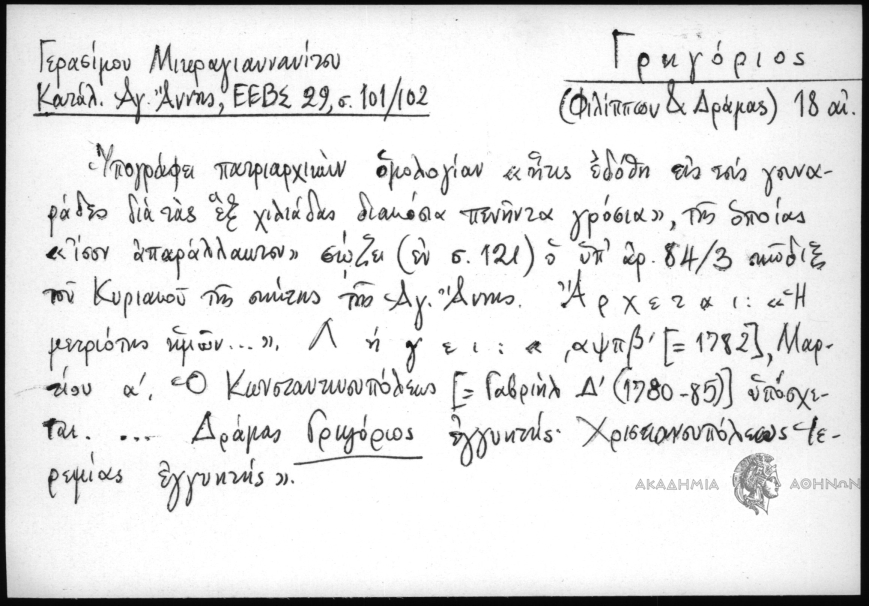 Γερασίμου Μικραγιαννανίτου
Κατάλ. Ἁγ. Ἄννης, ΕΕΒΣ 29, σ. 101/102
Γρηγόριος
(Φιλίππων & Δράμας) 18 αἰ.
Ὑπογράφει πατριαρχικὴν ὁμολογίαν «ἥτις ἐδόθη εἰς τοὺς γουνα-
ράδες διὰ τὰς ἓξ χιλιάδας διακόσια πενῆντα γρόσια», τῆς ὁποίας
«ἴσον ἀπαράλλακτον» σῴζει (ἐν σ. 121) ὁ ὑπ' ἀρ. 84/3 κῶδιξ
τοῦ Κυριακοῦ τῆς σκήτης τῆς Ἁγ. Ἄννης. Ἄρχεται: «Ἡ
μετριότης ἡμῶν...». Λήγει: «͵αψπβ' [= 1782], Μαρ-
τίου α'. Ὁ Κωνσταντινουπόλεως [= Γαβριὴλ Δ' (1780-85)] ὑπόσχε-
ται. ... Δράμας Γρηγόριος ἐγγυητής· Χριστιανουπόλεως Ἱε-
ρεμίας ἐγγυητής».
ΑΚΑΔΗΜΙΑ ΑΘΗΝΩΝ